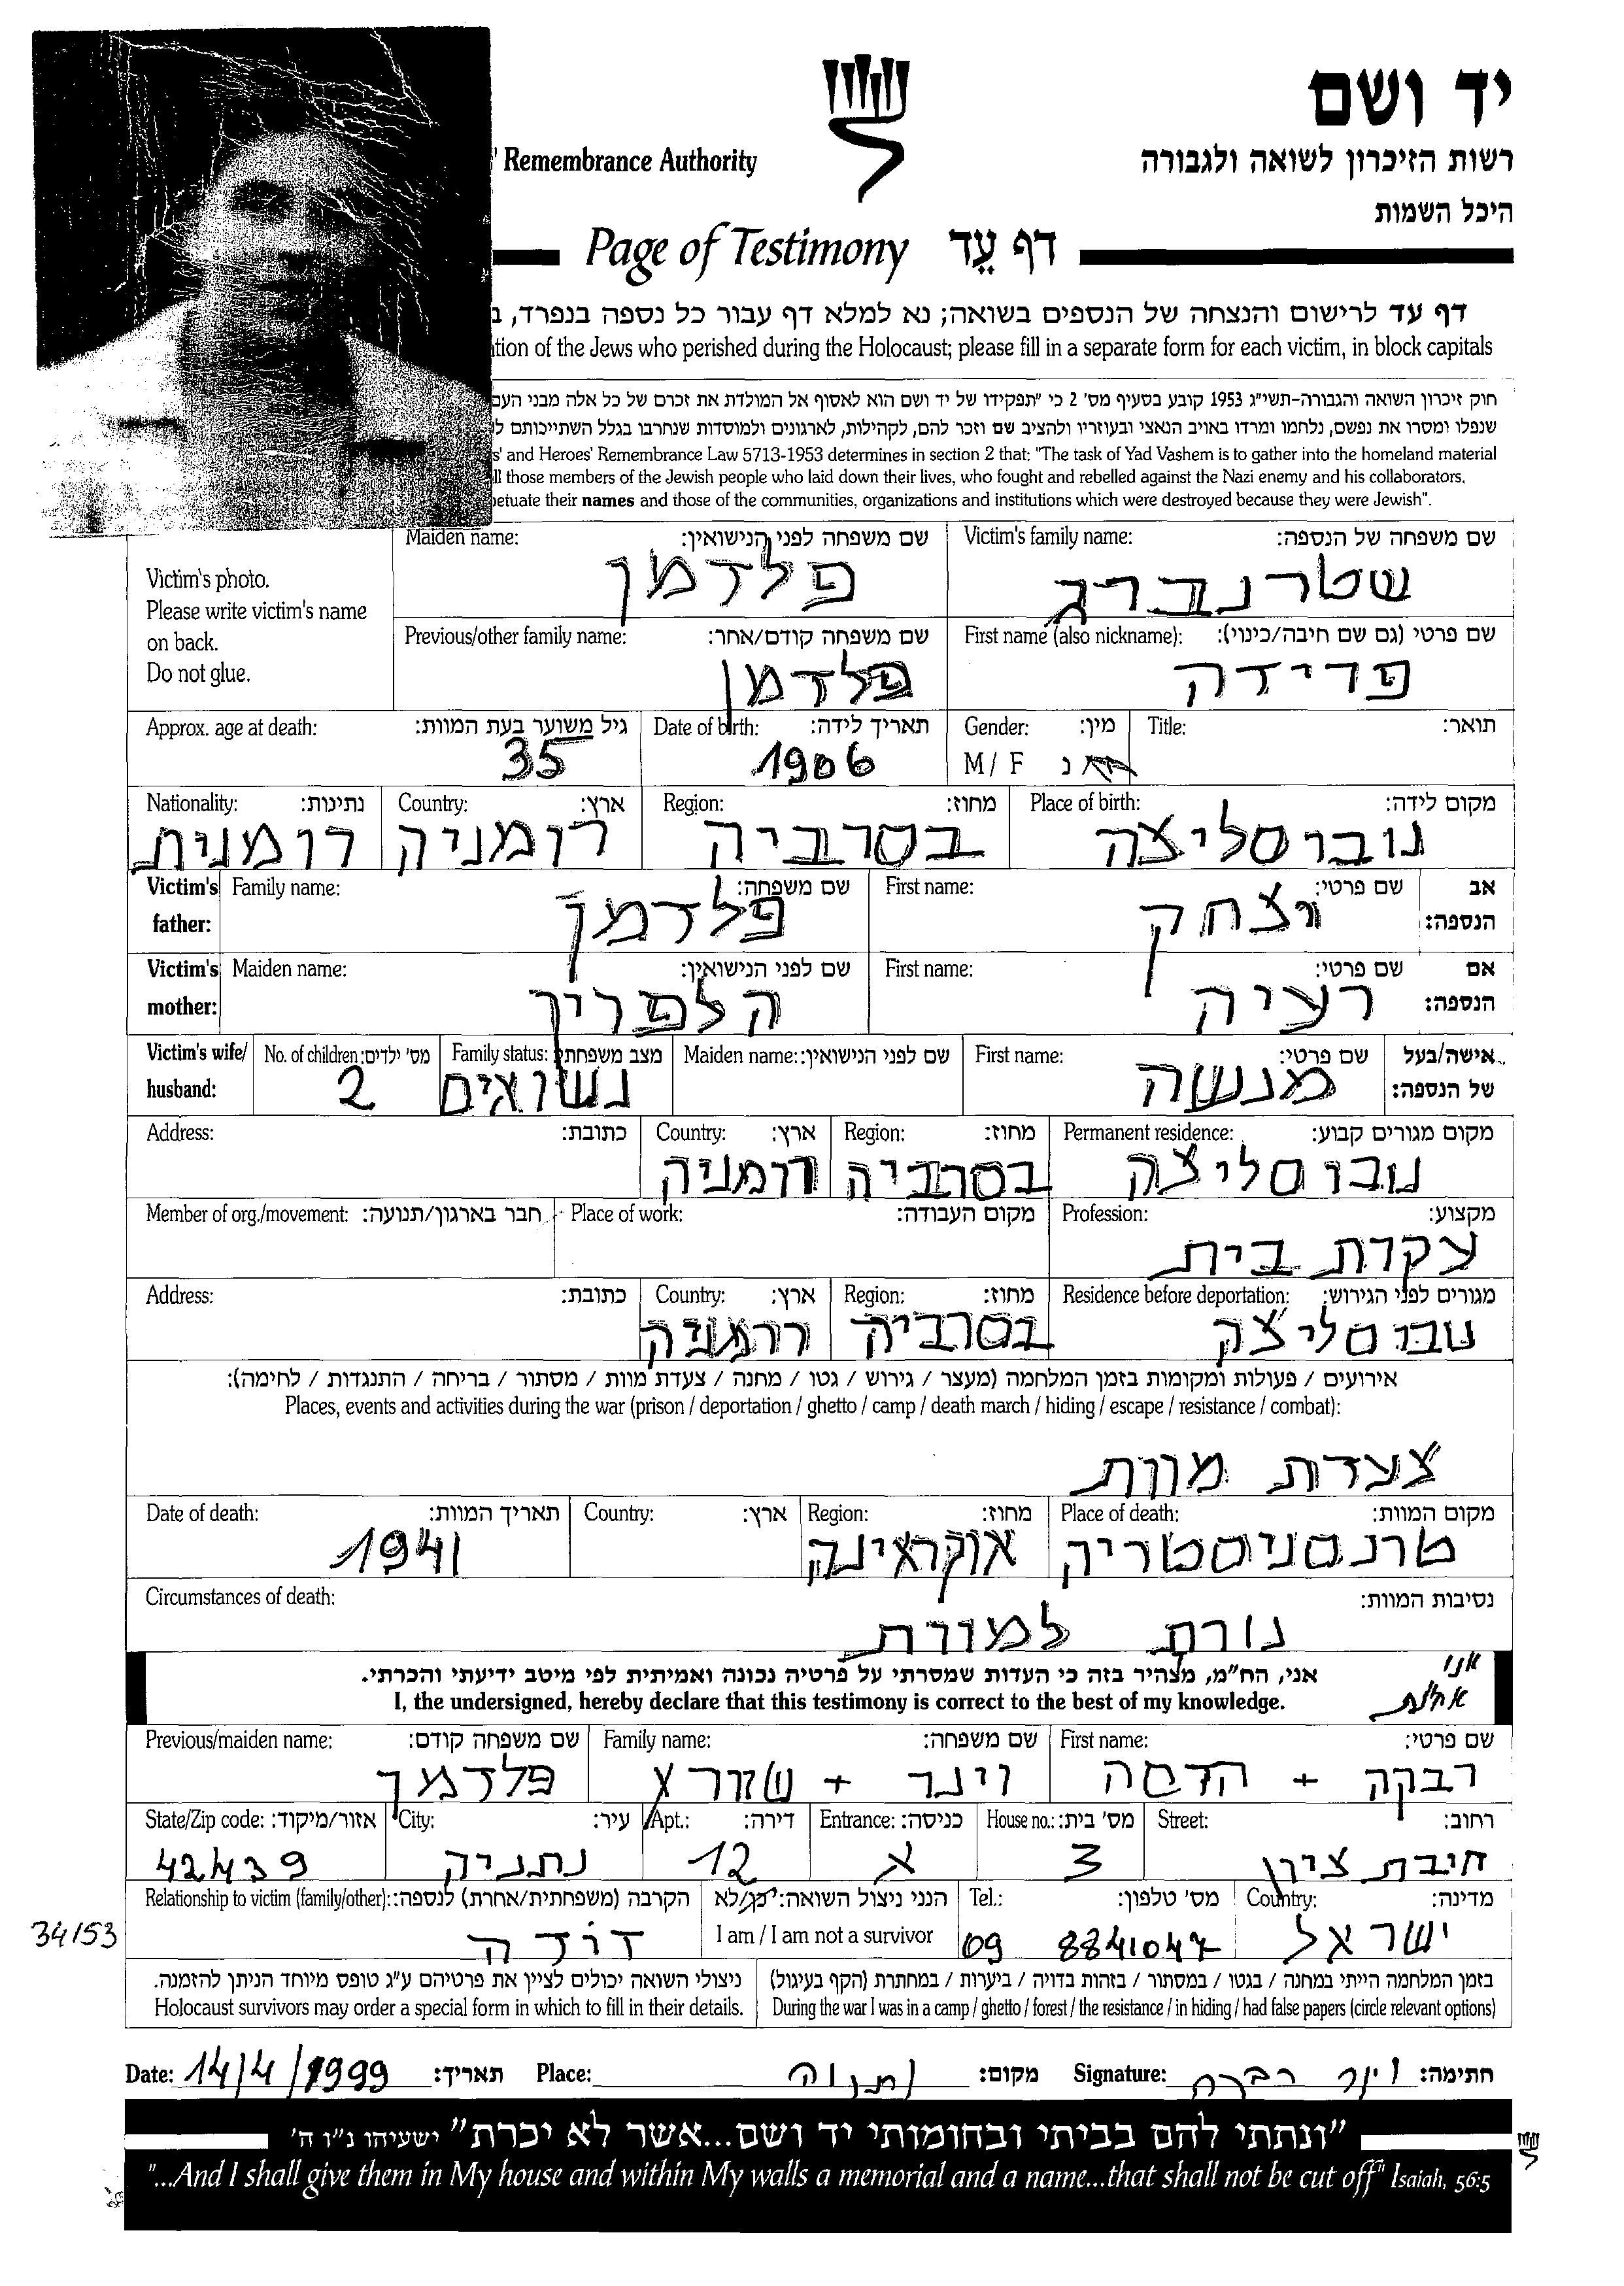 יד ושם
רשות הזיכרון לשואה ולגבורה
Remembrance Authority
היכל השמות
Page of Testimony דף עֵד
דף עד לרישום והנצחה של הנספים בשואה; נא למלא דף עבור כל נספה בנפרד, ב
tion of the Jews who perished during the Holocaust; please fill in a separate form for each victim, in block capitals
חוק זיכרון השואה והגבורה-תשי"ג 1953 קובע בסעיף מס' 2 כי "תפקידו של יד ושם הוא לאסוף אל המולדת את זכרם של כל אלה מבני העם
שנפלו ומסרו את נפשם, נלחמו ומרדו באויב הנאצי ובעוזריו ולהציב שם וזכר להם, לקהילות, לארגונים ולמוסדות שנחרבו בגלל השתייכותם ל
s' and Heroes' Remembrance Law 5713-1953 determines in section 2 that: "The task of Yad Vashem is to gather into the homeland material
ll those members of the Jewish people who laid down their lives, who fought and rebelled against the Nazi enemy and his collaborators,
petuate their names and those of the communities, organizations and institutions which were destroyed because they were Jewish".
Victim's photo.
Please write victim's name
on back.
Do not glue.
שם משפחה של הנספה: Victim's family name:
שטרנברג
שם משפחה לפני הנישואין: Maiden name:
פלדמן
שם פרטי (גם שם חיבה/כינוי): First name (also nickname):
פרידה
שם משפחה קודם/אחר: Previous/other family name:
פלדמן
תואר: Title:
מין: Gender:
M / F נ
תאריך לידה: Date of birth:
1906
גיל משוער בעת המוות: Approx. age at death:
35
מקום לידה: Place of birth:
נובוסליצה
מחוז: Region:
בסרביה
ארץ: Country:
רומניה
נתינות: Nationality:
רומנית
אב הנספה: Victim's father:
שם פרטי: First name:
יצחק
שם משפחה: Family name:
פלדמן
אם הנספה: Victim's mother:
שם פרטי: First name:
רעיה
שם לפני הנישואין: Maiden name:
הלפרין
אישה/בעל של הנספה: Victim's wife/ husband:
שם פרטי: First name:
מנשה
שם לפני הנישואין: Maiden name:
מצב משפחתי: Family status:
נשואים
מס' ילדים: No. of children:
2
מקום מגורים קבוע: Permanent residence:
נובוסליצה
מחוז: Region:
בסרביה
ארץ: Country:
רומניה
כתובת: Address:
מקצוע: Profession:
עקרת בית
מקום העבודה: Place of work:
חבר בארגון/תנועה: Member of org./movement:
מגורים לפני הגירוש: Residence before deportation:
נובוסליצה
מחוז: Region:
בסרביה
ארץ: Country:
רומניה
כתובת: Address:
אירועים / פעולות ומקומות בזמן המלחמה (מעצר / גירוש / גטו / מחנה / צעדת מוות / מסתור / בריחה / התנגדות / לחימה):
Places, events and activities during the war (prison / deportation / ghetto / camp / death march / hiding / escape / resistance / combat):
צעדת מוות
מקום המוות: Place of death:
טרנסניסטריה
מחוז: Region:
אוקראינה
ארץ: Country:
תאריך המוות: Date of death:
1941
נסיבות המוות: Circumstances of death:
נורת למוות
אני, הח"מ, מצהיר בזה כי העדות שמסרתי על פרטיה נכונה ואמיתית לפי מיטב ידיעתי והכרתי.
I, the undersigned, hereby declare that this testimony is correct to the best of my knowledge.
שם פרטי: First name:
רבקה + הדסה
שם משפחה: Family name:
וינר +
שם משפחה קודם: Previous/maiden name:
פלדמן
רחוב: Street:
חיבת ציון
מס' בית: House no.:
3
כניסה: Entrance:
א
דירה: Apt.:
12
עיר: City:
נתניה
אזור/מיקוד: State/Zip code:
42439
מדינה: Country:
ישראל
מס' טלפון: Tel.:
09 8841047
הנני ניצול השואה: כן/לא
I am / I am not a survivor
הקרבה (משפחתית/אחרת) לנספה: Relationship to victim (family/other):
דודה
34/53
בזמן המלחמה הייתי במחנה / בגטו / במסתור / בזהות בדויה / ביערות / במחתרת (הקף בעיגול)
During the war I was in a camp / ghetto / forest / the resistance / in hiding / had false papers (circle relevant options)
ניצולי השואה יכולים לציין את פרטיהם ע"ג טופס מיוחד הניתן להזמנה.
Holocaust survivors may order a special form in which to fill in their details.
חתימה: וינר רבקה Signature:
מקום: נתניה Place:
תאריך: 14/4/1999 Date:
"ונתתי להם בביתי ובחומותי יד ושם...אשר לא יכרת" ישעיהו נ"ו ה'
"...And I shall give them in My house and within My walls a memorial and a name...that shall not be cut off" Isaiah, 56:5